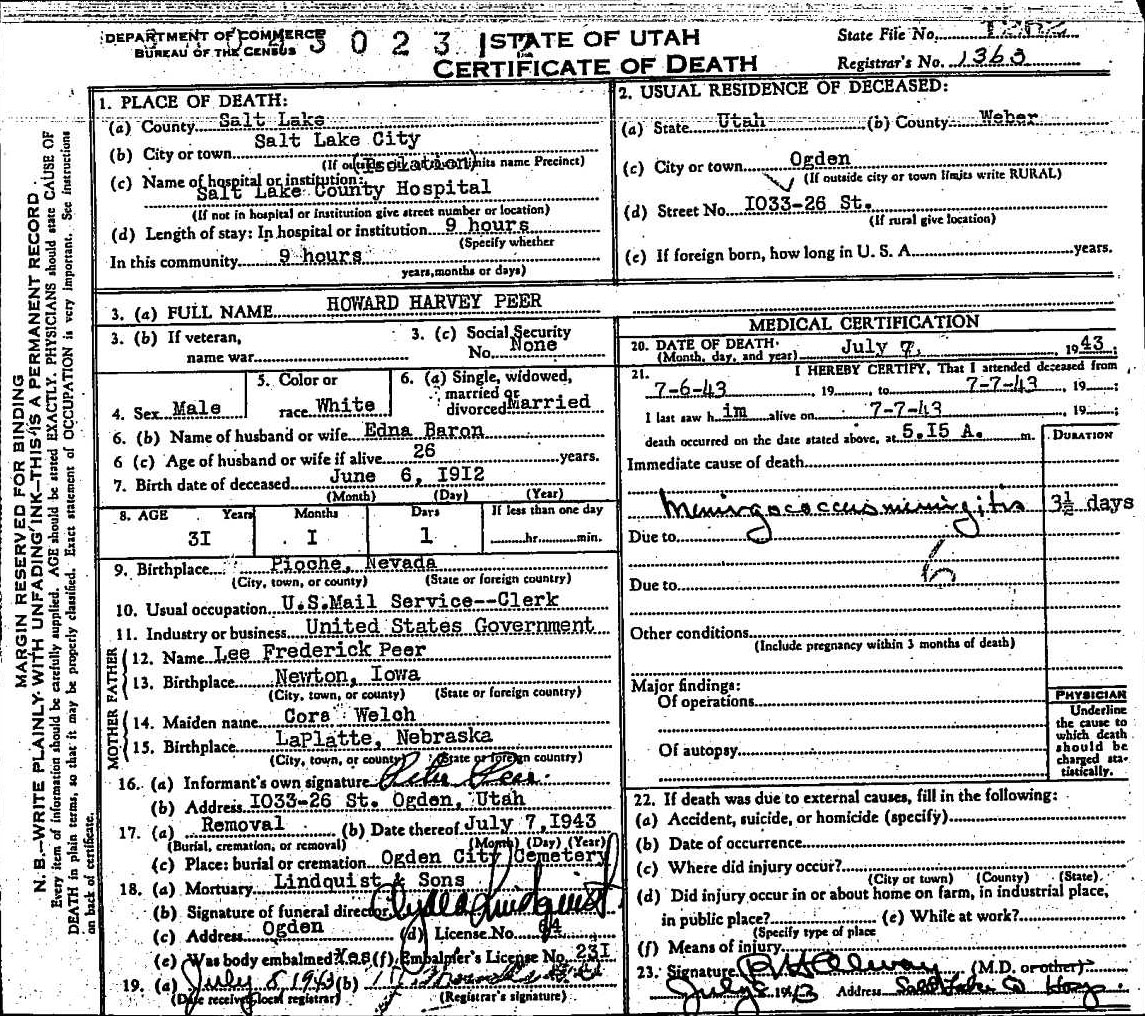 DEPARTMENT OF COMMERCE
BUREAU OF THE CENSUS
3 0 2 3
STATE OF UTAH
CERTIFICATE OF DEATH
State File No.
Registrar's No. 1363
MARGIN RESERVED FOR BINDING
N. B.—WRITE PLAINLY WITH UNFADING INK—THIS IS A PERMANENT RECORD.
Every item of information should be carefully supplied. AGE should be stated EXACTLY. PHYSICIANS should state CAUSE OF
DEATH in plain terms, so that it may be properly classified. Exact statement of OCCUPATION is very important. See instructions
on back of certificate.
1. PLACE OF DEATH:
(a) County Salt Lake
(b) City or town Salt Lake City
(If outside city limits name Precinct)
(Isolation)
(c) Name of hospital or institution:
Salt Lake County Hospital
(If not in hospital or institution give street number or location)
(d) Length of stay: In hospital or institution 9 hours
(Specify whether
In this community 9 hours
years, months or days)
2. USUAL RESIDENCE OF DECEASED:
(a) State Utah (b) County Weber
(c) City or town Ogden
(If outside city or town limits write RURAL)
(d) Street No. I033-26 St.
(If rural give location)
(e) If foreign born, how long in U. S. A. years.
3. (a) FULL NAME HOWARD HARVEY PEER
3. (b) If veteran,
name war
3. (c) Social Security
No. None
4. Sex Male
5. Color or
race White
6. (a) Single, widowed,
married or
divorced Married
6. (b) Name of husband or wife Edna Baron
6 (c) Age of husband or wife if alive 26 years.
7. Birth date of deceased June 6, I9I2
(Month) (Day) (Year)
8. AGE Years Months Days If less than one day
3I I 1 hr. min.
9. Birthplace Pioche, Nevada
(City, town, or county) (State or foreign country)
10. Usual occupation U.S.Mail Service--Clerk
11. Industry or business United States Government
FATHER
12. Name Lee Frederick Peer
13. Birthplace Newton, Iowa
(City, town, or county) (State or foreign country)
MOTHER
14. Maiden name Cora Welch
15. Birthplace LaPlatte, Nebraska
(City, town, or county) (State or foreign country)
16. (a) Informant's own signature Peer
(b) Address I033-26 St. Ogden, Utah
17. (a) Removal (b) Date thereof July 7, I943
(Burial, cremation, or removal) (Month) (Day) (Year)
(c) Place: burial or cremation Ogden City Cemetery
18. (a) Mortuary Lindquist & Sons
(b) Signature of funeral director Clyde Lindquist
(c) Address Ogden (d) License No. 64
(e) Was body embalmed Yes (f) Embalmer's License No. 23I
19. (a) July 8, 1943 (b)
(Date received local registrar) (Registrar's signature)
MEDICAL CERTIFICATION
20. DATE OF DEATH.
(Month, day, and year) July 7, 1943;
21. I HEREBY CERTIFY, That I attended deceased from
7-6-43, 19 to 7-7-43, 19 ;
I last saw h im alive on 7-7-43, 19 ;
death occurred on the date stated above, at 5.I5 A. m.
DURATION
Immediate cause of death
Meningococcus meningitis 3½ days
Due to
6
Due to
Other conditions
(Include pregnancy within 3 months of death)
Major findings:
Of operations
Of autopsy
PHYSICIAN
Underline
the cause to
which death
should be
charged sta-
tistically.
22. If death was due to external causes, fill in the following:
(a) Accident, suicide, or homicide (specify)
(b) Date of occurrence
(c) Where did injury occur?
(City or town) (County) (State)
(d) Did injury occur in or about home on farm, in industrial place,
in public place? (e) While at work?
(Specify type of place
(f) Means of injury
23. Signature R H Alway (M.D. or other)
July 8 1943 Address Salt Lake Co Hosp.